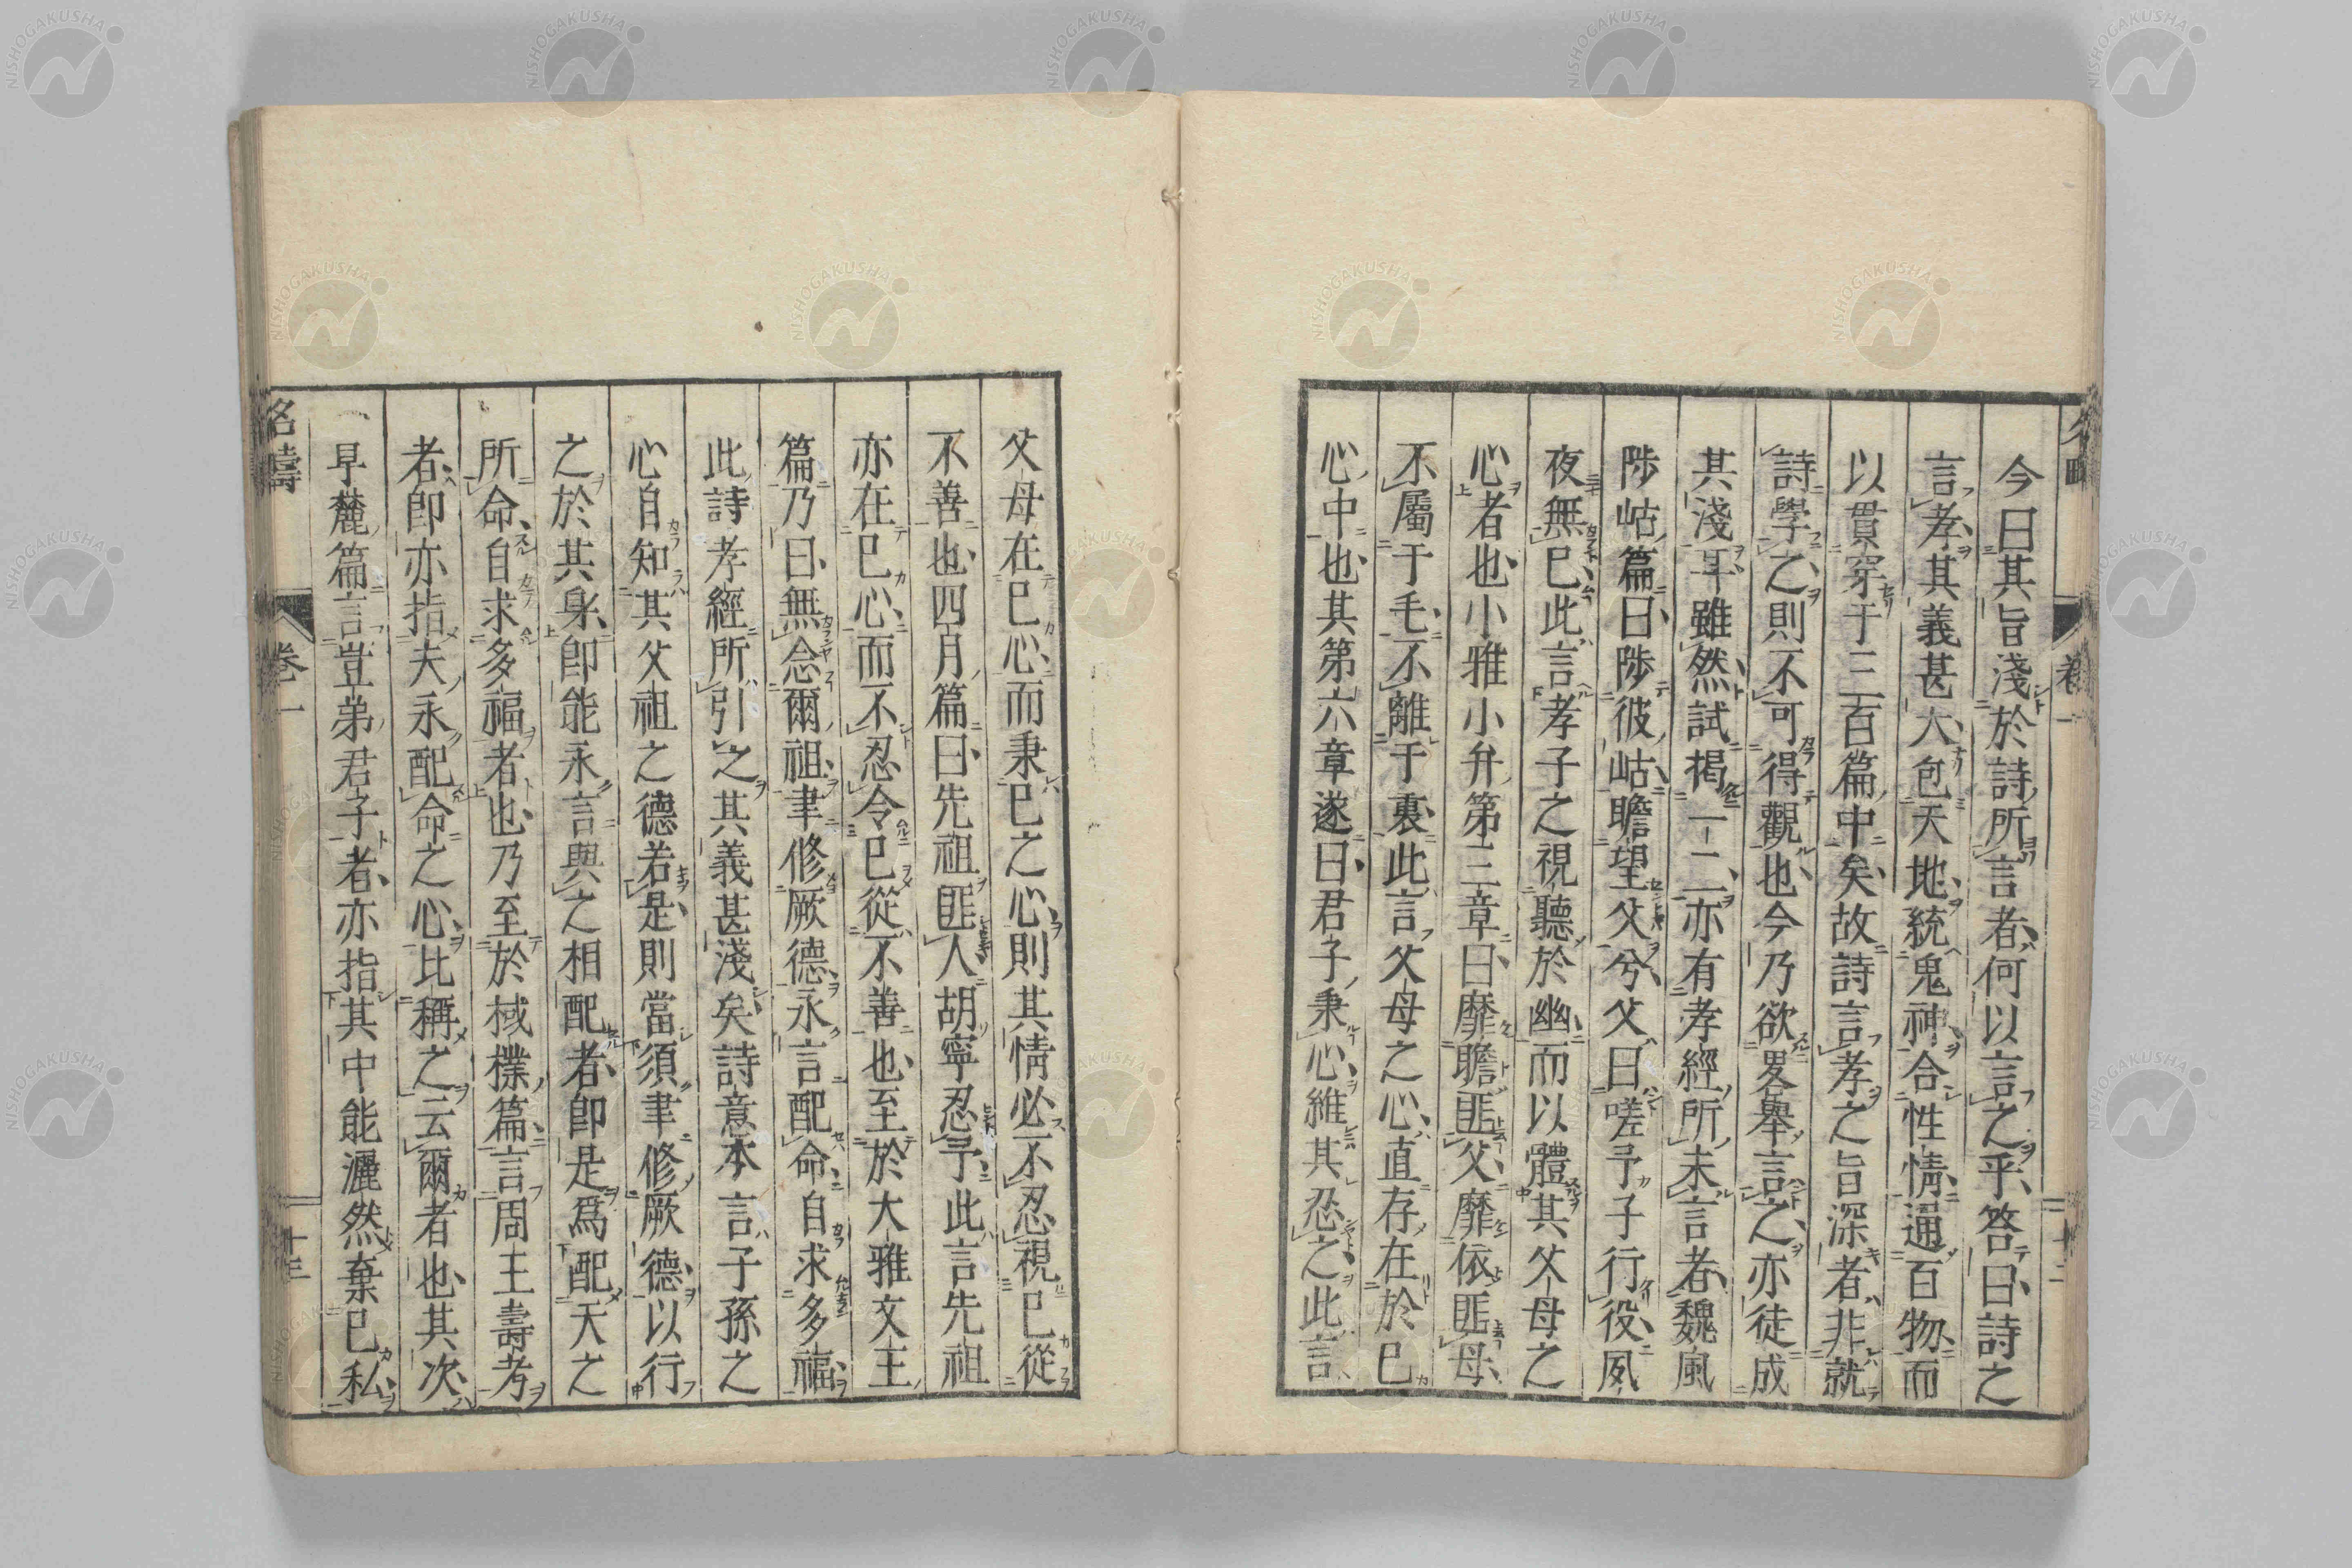 今曰其旨淺於詩所言者何以言之乎答曰詩之
言孝其義甚大包天地統鬼神合性情通百物而
以貫穿于三百篇中矣故詩言孝之旨深者非就
詩學之則不可得觀也今乃欲畧舉言之亦徒成
其淺耳雖然試揭一二亦有孝經所未言者魏風
陟岵篇曰陟彼岵瞻望父兮父曰嗟予子行役夙
夜無已此言孝子之視聽於幽而以體其父母之
心者也小雅小弁第三章曰靡瞻匪父靡依匪母
不屬于毛不離于裏此言父母之心直存在於己
心中也其第六章遂曰君子秉心維其忍之此言
父母在己心而秉己之心則其情必不忍視己從
不善也四月篇曰先祖匪人胡寧忍予此言先祖
亦在己心而不忍令己從不善也至於大雅文王
篇乃曰無念爾祖聿修厥德永言配命自求多福
此詩孝經所引之其義甚淺矣詩意本言子孫之
心自知其父祖之德若是則當須聿修厥德以行
之於其身即能永言與之相配者即是爲配天之
所命自求多福者也乃至於棫樸篇言周王壽考
者即亦指夫永配命之心比稱之云爾者也其次
旱麓篇言豈弟君子者亦指其中能灑然棄己私
名疇
卷一
十三
NISHOGAKUSHA